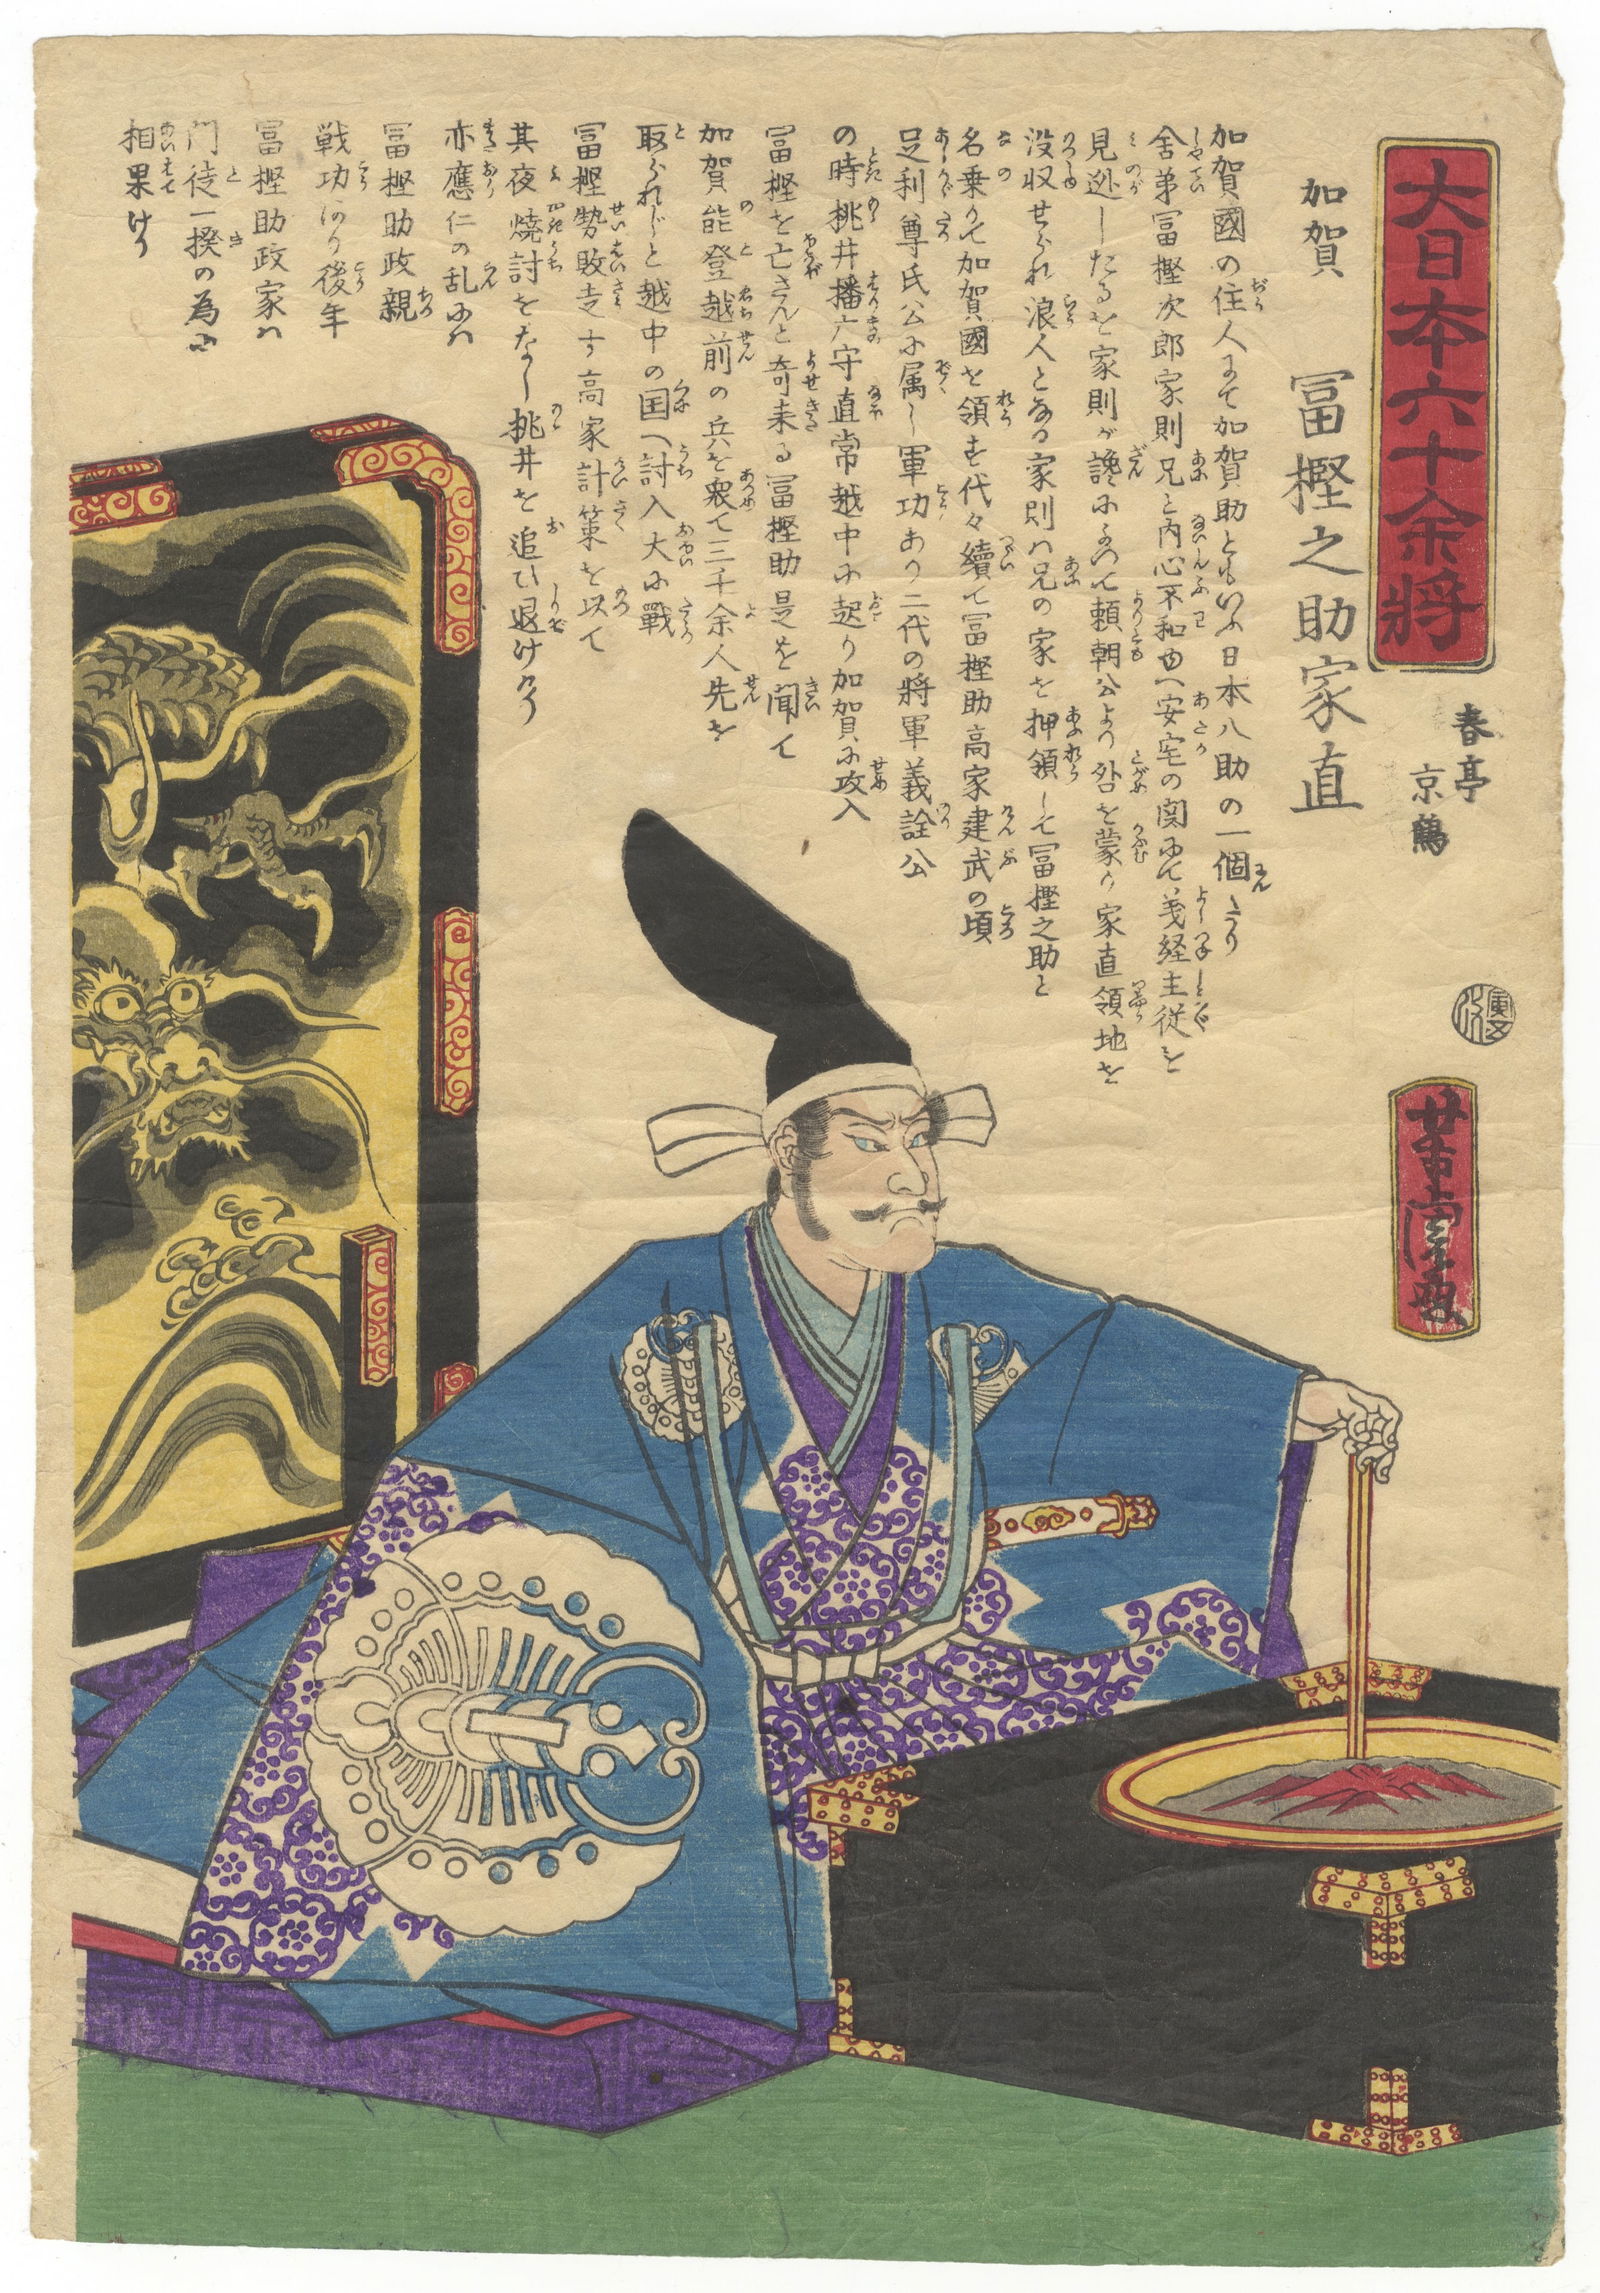 大日本六十余将
春亭
京鶴
加賀 冨樫之助家直
加賀國の住人にて加賀助ともいふ日本八助の一個なり
舎弟冨樫次郎家則兄と内心不和ゆへ安宅の関にて義経主従を
見逃したるを家則が讒によつて頼朝公より咎を蒙り家直領地を
没収せられ浪人となる家則は兄の家を押領して冨樫之助と
名乗りて加賀國を領す代々續て冨樫助高家建武の頃
足利尊氏公に属し軍功あり二代の将軍義詮公
の時桃井播广守直常越中に起り加賀に攻入
冨樫を亡さんと奇来る冨樫助是を聞て
加賀能登越前の兵を衆て三千余人先を
取られじと越中の国へ討入大に戰
冨樫勢敗走す高家計策を以て
其夜焼討をなし桃井を追ひ退けける
亦應仁の乱には
冨樫助政親
戦功あり後年
冨樫助政家は
門徒一揆の為に
相果けり
芳虎画